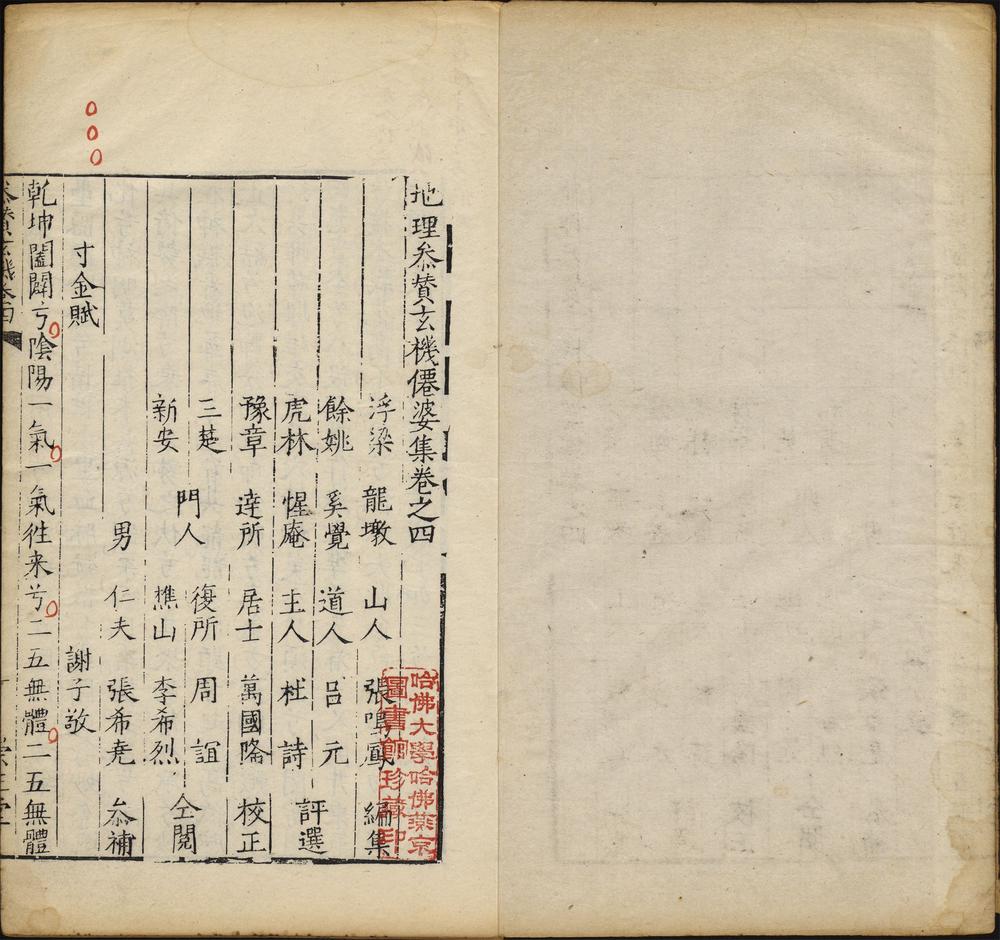 地理叅賛玄機僊婆集卷之四
浮梁 龍墩 山人 張鳴鳳 編集
餘姚 奚覺 道人 吕元
虎林 惺庵 主人 杜詩 評選
豫章 逹所 居士 萬國隆 校正
三楚 門人 復所 周誼
新安 樵山 李希烈 仝閱
男 仁夫 張希尭 叅補
寸金賦 謝子敬
乾坤闔闢兮陰陽一氣一氣徃来兮二五無體二五無體
叅賛玄機卷四
哈佛大學哈佛燕京
圖書館珍藏印